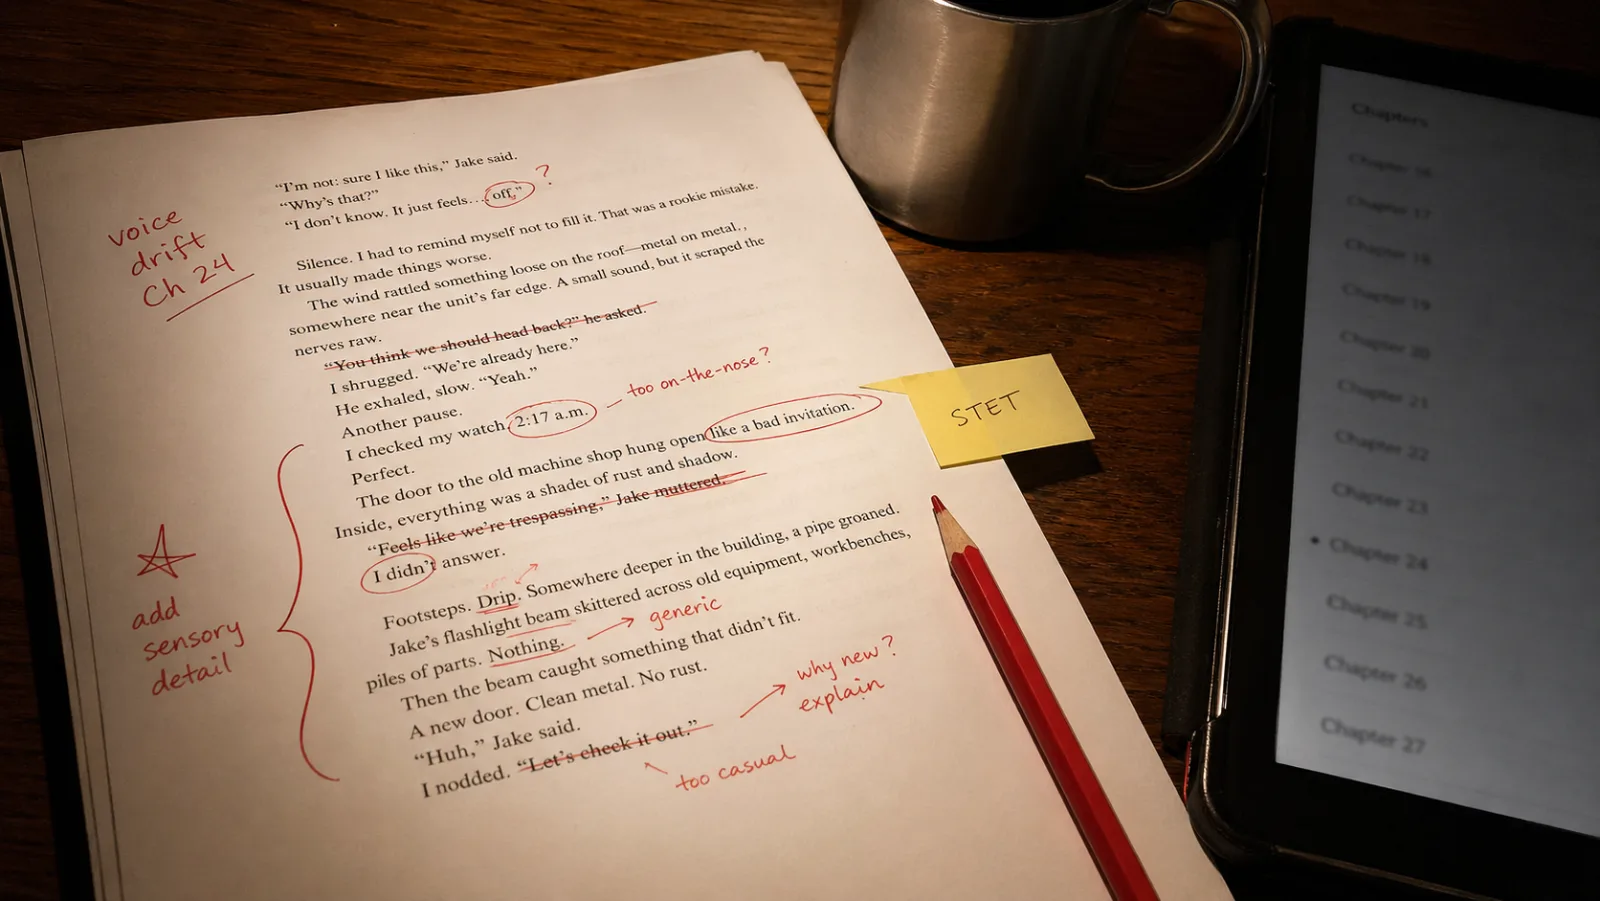 “I'm not: sure I like this,” Jake said.
“Why's that?”
“I don't know. It just feels.... off.”
?
voice
drift
Ch 24
Silence. I had to remind myself not to fill it. That was a rookie mistake.
It usually made things worse.
The wind rattled something loose on the roof—metal on metal.,
somewhere near the unit's far edge. A small sound, but it scraped the
nerves raw.
“You think we should head back?” he asked.
I shrugged. “We're already here.”
He exhaled, slow. “Yeah.”
Another pause.
I checked my watch. 2:17 a.m.
too on-the-nose?
Perfect.
The door to the old machine shop hung open like a bad invitation.
STET
Inside, everything was a shade of rust and shadow.
“Feels like we're trespassing,” Jake muttered.
I didn't answer.
Footsteps. Drip. Somewhere deeper in the building, a pipe groaned.
Jake's flashlight beam skittered across old equipment, workbenches,
piles of parts. Nothing.
generic
add
sensory
detail
Then the beam caught something that didn't fit.
A new door. Clean metal. No rust.
why new?
explain
“Huh,” Jake said.
I nodded. “Let's check it out.”
too casual
Chapters
Chapter 16
Chapter 17
Chapter 18
Chapter 19
Chapter 20
Chapter 21
Chapter 22
Chapter 23
• Chapter 24
Chapter 25
Chapter 26
Chapter 27